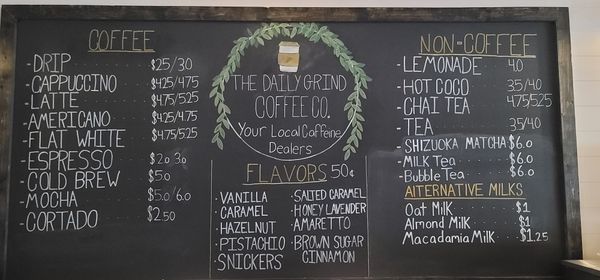 COFFEE
-DRIP $25/30
-CAPPUCCINO $425/475
-LATTE $475/525
-AMERICANO $425/475
-FLAT WHITE $475/525
-ESPRESSO $20 30
-COLD BREW $50
-MOCHA $5.0/6.0
-CORTADO $2.50
THE DAILY GRIND
COFFEE CO.
Your Local Caffeine
Dealers
FLAVORS 50¢
·VANILLA
·CARAMEL
·HAZELNUT
·PISTACHIO
·SNICKERS
·SALTED CARAMEL
·HONEY LAVENDER
·AMARETTO
·BROWN SUGAR
CINNAMON
NON-COFFEE
-LEMONADE 4.0
-HOT COCO 35/40
-CHAI TEA 475/525
-TEA 35/40
-SHIZUOKA MATCHA $6.0
-MILK Tea $6.0
-Bubble Tea $6.0
ALTERNATIVE MILKS
Oat Milk $1
Almond Milk $1
Macadamia Milk $1.25